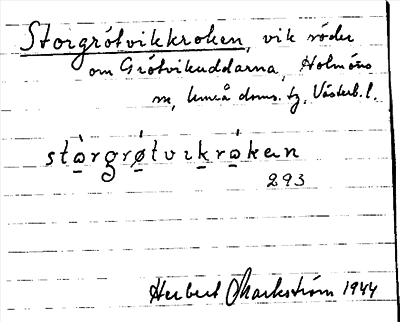 Storgrötvikkroken, vik söder
om Grötvikuddarna, Holmöns
sn, Umeå doms. tg, Västerb. l.
stò̱rgrǿ̱tviḵrò̱ken
293
Herbert Markström 1944